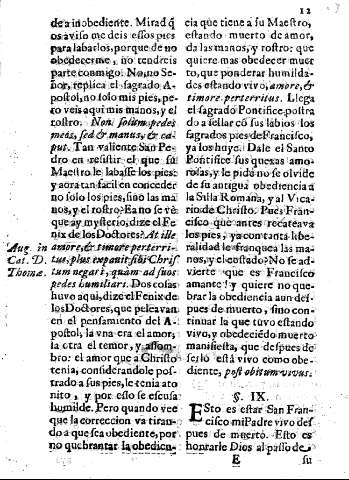 12
de a inobediente. Mirad q̃
os aviso me deis essos pies
para labarlos, porque de no
obedecerme, no tendreis
parte conmigo. No, no Se-
ñor, replica el sagrado A-
postol, no solo mis pies, pe-
ro veis aqui mis manos, y el
rostro. Non solum pedes
meos, sed & manus, & ca-
put. Tan valiente San Pe-
dro en resistir el que su
Maestro le labasse los pies:
y aora tan facil en conceder
no solo los pies, sino las ma
nos, y el rostro? Ea no se vè
que ay mysterio, dize el Fe
nix de los Doctores? At ille
amore, & timore perterri-
tus, plus expavit sibi Chris
tum negari, quàm ad suos
pedes humiliari. Dos cosas
huvo aqui, dize el Fenix de
los Doctores, que peleavan
en el pensamiento del A-
postol, la vna era el amor,
la otra el temor, y assom-
bro: el amor que a Christo
tenia, considerandole pos-
trado a sus pies, le tenia ato
nito, y por esso se escusa
humilde. Pero quando vee
que la correccion va tiran-
do a que sea obediente, por
no quebrantar la obedien-
Aug. in
Cat. D.
Thomæ.
cia que tiene a su Maestro,
estando muerto de amor,
da las manos, y rostro: que
quiere mas obedecer muer
to, que ponderar humilda-
des estando vivo, amore, &
timore perterritus. Llega
el sagrado Pontifice postra
do a sellar cõ sus labios los
sagrados pies de Francisco,
ya los huye. Dale el Santo
Pontifice sus quexas amo-
rosas, y le pide no se olvide
de su antigua obediencia a
la Silla Romana, y al Vica-
rio de Christo. Pues Fran-
cisco que antes recateava
los pies, ya con tanta libe-
ralidad le franquea las ma-
nos, y el costado? No se ad-
vierte que es Francisco
amante? y quiere no que-
brar la obediencia aun des-
pues de muerto, sino con-
tinuar la que tuvo estando
vivo, y obedeciẽdo muerto
manifiesta, que despues de
serlo està vivo como obe-
diente, post obitum vivus.
§. IX.
ESto es estar San Fran-
cisco mi Padre vivo des
pues de muerto. Esto es
honrarle Dios al passo de
E
su